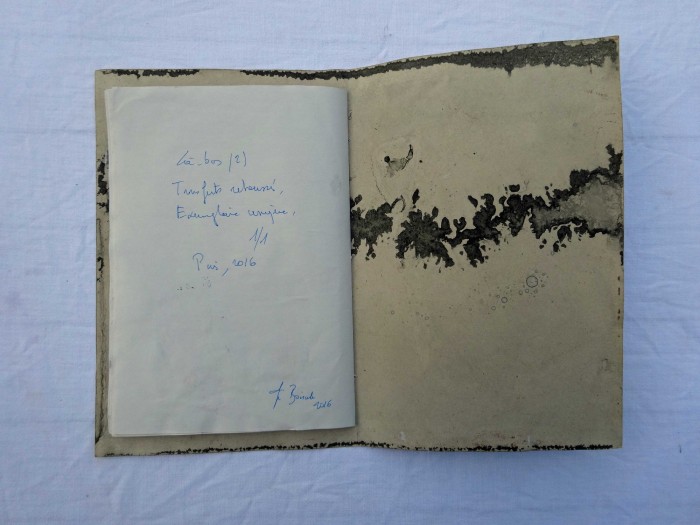 Là-bas (2)
Transferts rehaussés,
Exemplaire unique,
1/1
Paris, 2016
2016